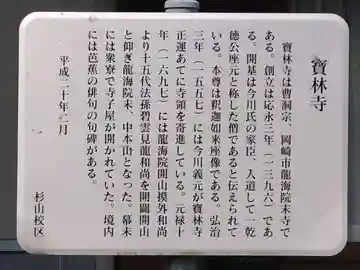 寳林寺
寳林寺は曹洞宗、岡崎市龍海院末寺で
ある。創立は応永三年（一三九六）であ
る。開基は今川氏の家臣、入道して一乾
徳公座元と称した僧であると伝えられて
いる。本尊は釈迦如来座像である。弘治
三年（一五五七）には今川義元が寳林寺
正運あてに寺領を寄進している。元禄十
年（一六九七）には龍海院開山摸外和尚
より十五代法孫碧雲見龍和尚を開闢開山
と仰ぎ龍海院末、中本寺となった。幕末
には衆寮で寺子屋が開かれていた。境内
には芭蕉の俳句の句碑がある。
平成二十年二月
杉山校区